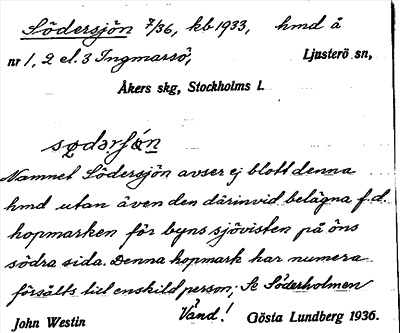 Södersjön 7/36, kb 1933, hmd å
nr 1, 2 el. 3 Ingmarsö, Ljusterö sn,
Åkers skg, Stockholms l.
Namnet Södersjön avser ej blott denna
hmd utan även den därinvid belägna f.d.
hopmarken för byns sjövisten på öns
södra sida. Denna hopmark har numera
försålts til enskild person; Se Söderholmen
Vänd!
John Westin Gösta Lundberg 1936.